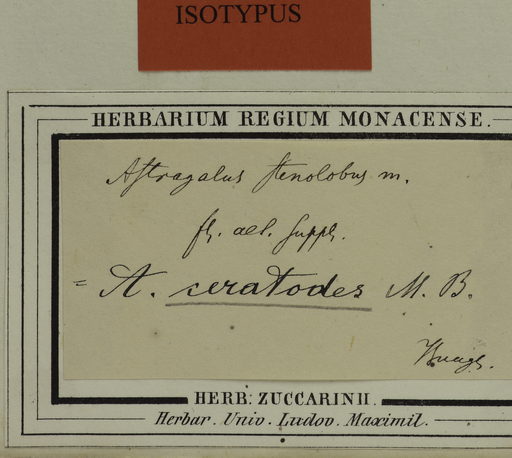 ISOTYPUS
HERBARIUM REGIUM MONACENSE.
Astragalus stenolobus m.
fl. alt. suppl.
= A. ceratodes M. B.
Bunge.
HERB: ZUCCARINII.
Herbar. Univ. Ludov. Maximil.